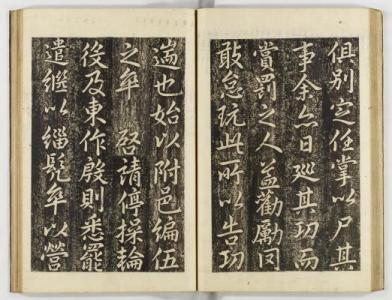 俱別定任掌以尸其
事余亦日巡其功而
賞罰之人益勸勵罔
敢怠玩此所以告功
遄也始以附邑編伍
之卒 啓請停操輪
役及東作殷則悉罷
遣繼以緇髡卒以營